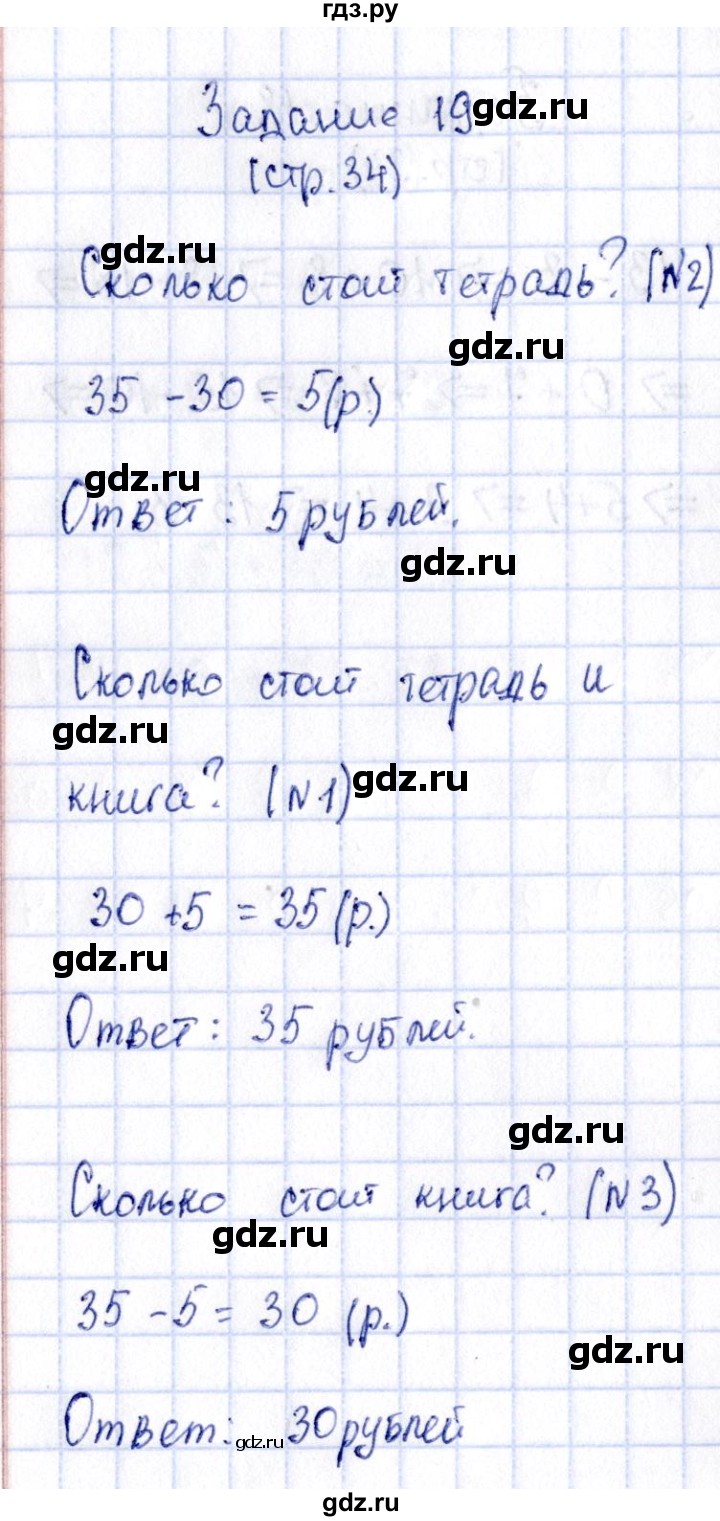 гдз.ру
Задание 19
gdz.ru
(стр. 34)
gdz.ru
Сколько стоит тетрадь? (№2)
gdz.ru
35 - 30 = 5(р.)
gdz.ru
Ответ: 5 рублей.
gdz.ru
Сколько стоит тетрадь и
gdz.ru
книга? (№1)
gdz.ru
30 + 5 = 35 (р.)
gdz.ru
Ответ: 35 рублей.
gdz.ru
Сколько стоит книга? (№3)
gdz.ru
35 - 5 = 30 (р.)
gdz.ru
Ответ: 30 рублей
gdz.ru
gdz.ru